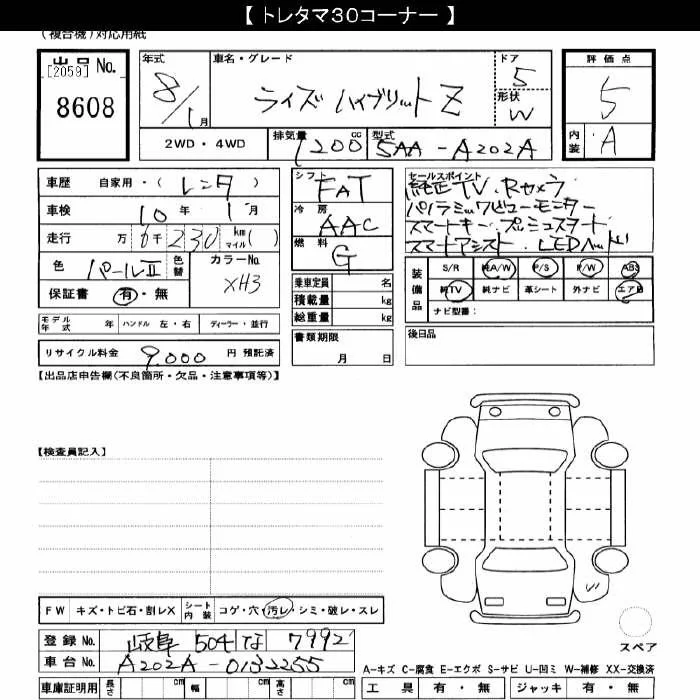 【 トレタマ30コーナー 】
(複合機)対応用紙
出品 No.
[2059]
8608
年式
8/1月
車名・グレード
ライズ ハイブリット Z
ドア
5
形状
W
評価点
5
内装
A
2WD・4WD
排気量 1200cc
型式 5AA-A202A
車歴 自家用・(レンタ)
車検 10年 1月
走行 万 6千230 km マイル( )
色 パールII
色替
カラーNo. XH3
保証書 有・無
シフト FAT
冷房 AAC
燃料 G
乗車定員 名
積載量 kg
総重量 kg
セールスポイント
純正TV.Rカメラ
パノラミックビューモニター
スマートキー.プッシュスタート
スマートアシスト.LEDヘッド
装備品
S/R 純A/W P/S P/W ABS
純TV 純ナビ 革シート 外ナビ エアB
ナビ型番:
モデル年式 年 ハンドル 左・右 ディーラー・並行
書類期限 月 日
後日品
リサイクル料金 9,000 円 預託済
【出品店申告欄(不良箇所・欠品・注意事項等)】
【検査員記入】
FW キズ・トビ石・割レX
シート内装 コゲ・穴・汚レ・シミ・破レ・スレ
登録 No. 岐阜 504 な 7992
車台 No. A202A-0132255
車庫証明用 長さ cm 幅 cm 高さ cm
スペア
A-キズ C-腐食 E-エクボ S-サビ U-凹ミ W-補修 XX-交換済
工具 有・無 ジャッキ 有・無